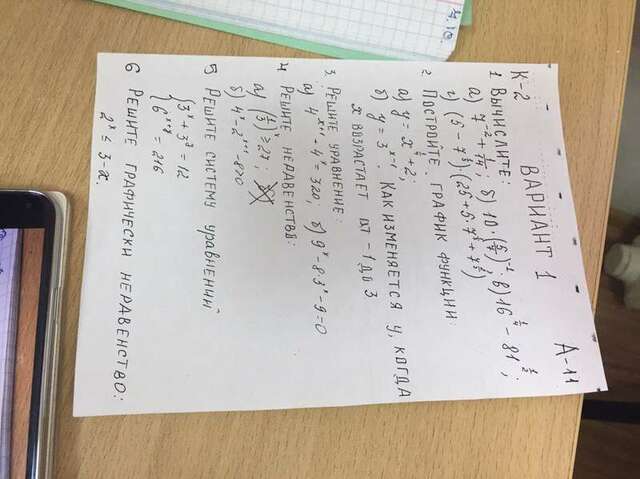 К-2 ВАРИАНТ 1 А-11
1 ВЫЧИСЛИТЕ:
а) 7⁻² + 1/14; б) 10·(5/7)⁻¹; в) 16^(1/4) − 81^(1/2);
г) (5 − 7^())·(25 + 5·7^() + 7^())
2. ПОСТРОЙТЕ ГРАФИК ФУНКЦИИ
а) y = x^() + 2;
б) y = 3^(x−1). КАК ИЗМЕНЯЕТСЯ y, КОГДА
x ВОЗРАСТАЕТ ОТ −1 ДО 3
3. РЕШИТЕ УРАВНЕНИЕ:
а) 4^(x+1) + 4^x = 320; б) 9^x − 8·3^x − 9 = 0
4 РЕШИТЕ НЕРАВЕНСТВО:
а) (1/3)^x ≥ 27;
б) 4^x − 2^(x+1) − 8 > 0
5 РЕШИТЕ СИСТЕМУ УРАВНЕНИЙ
{3^x + 3^y = 12
6^(x+y) = 216
6 РЕШИТЕ ГРАФИЧЕСКИ НЕРАВЕНСТВО:
2^x ≤ 3 − x.